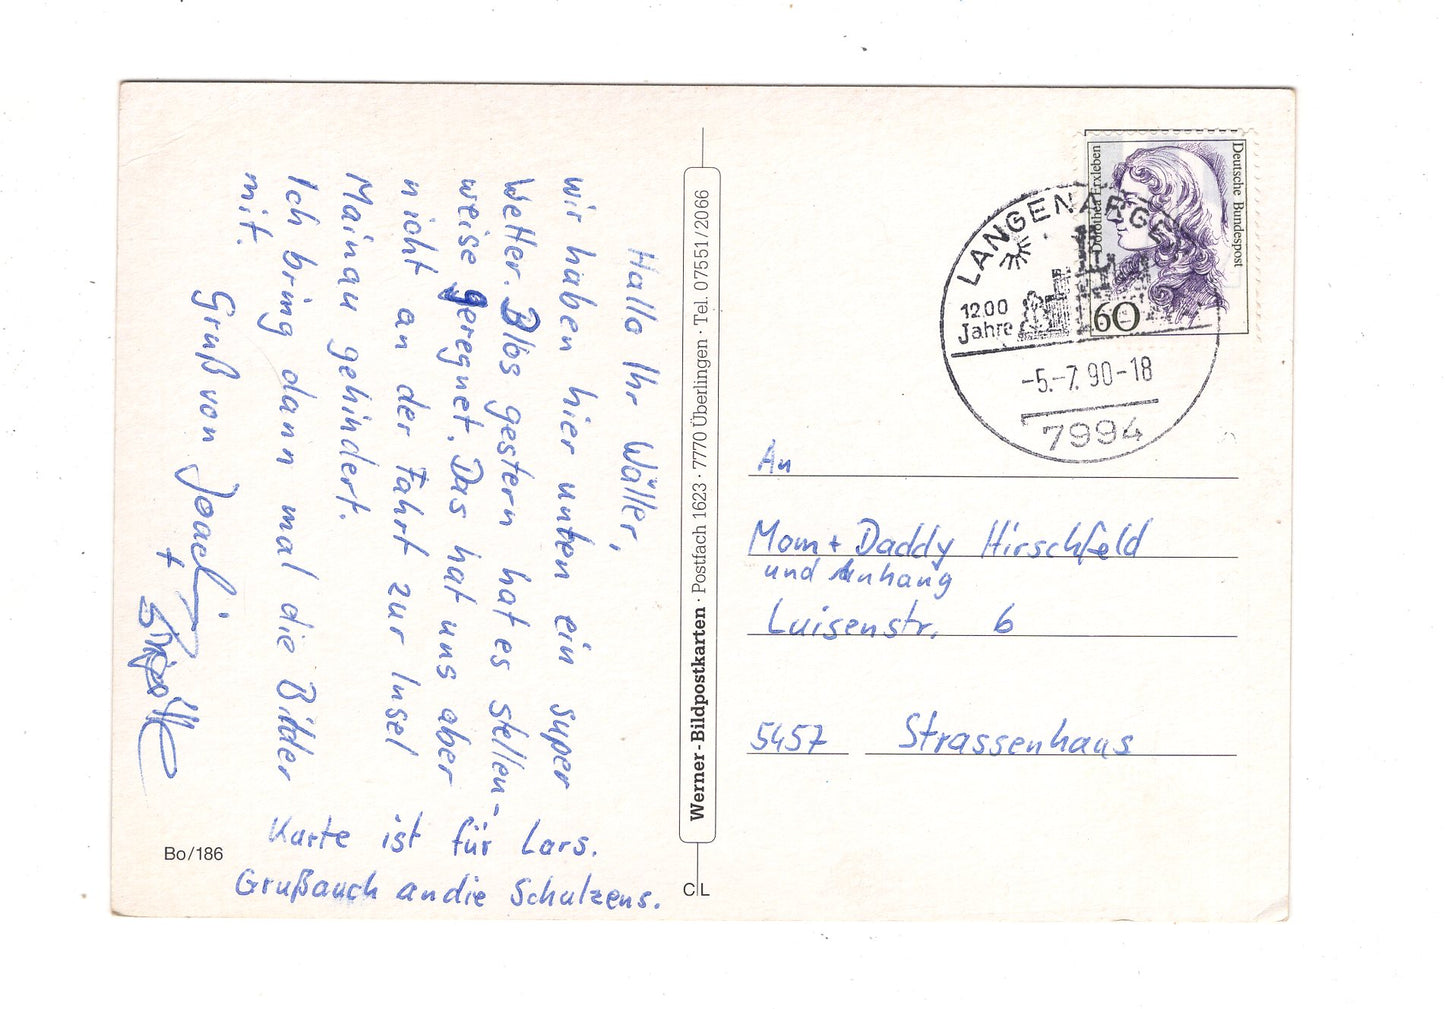 Hallo Ihr Wäller,
wir haben hier unten ein super
Wetter. Blos gestern hat es stellen-
weise geregnet. Das hat uns aber
nicht an der Fahrt zur Insel
Mainau gehindert.
Ich bring dann mal die Bilder
mit.
Gruß von Joachim
+
Brigitte
Karte ist für Lars.
Gruß auch an die Schulzens.
Bo/186
Werner-Bildpostkarten · Postfach 1623 · 7770 Überlingen · Tel. 07551/2066
C L
Deutsche Bundespost
Dorothea Erxleben
60
LANGENARGEN
1200
Jahre
-5.-7.90-18
7994
An
Mom + Daddy Hirschfeld
und Anhang
Luisenstr. 6
5457 Strassenhaus